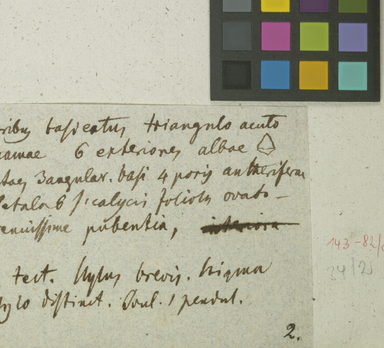 basicatus triangulo acuto
6 exteriores albae
3angular. basi 4 poris antheriferae
Petala 6 s. calycis foliola ovato-
tenuissime pubentia,
test. Stylus brevis. Stigma
Stylo distinct. Ovul. 1 pendul.
2.
143-82/
24/2